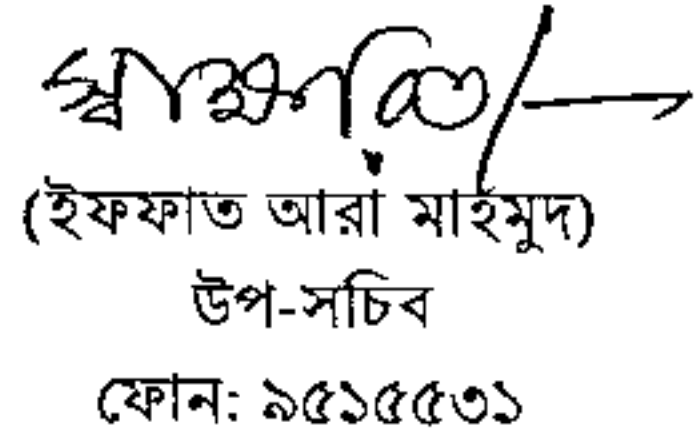 স্বাক্ষরিত/—
(ইফফাত আরা মাহমুদ)
উপ-সচিব
ফোন: ৯৫১৫৫৩১